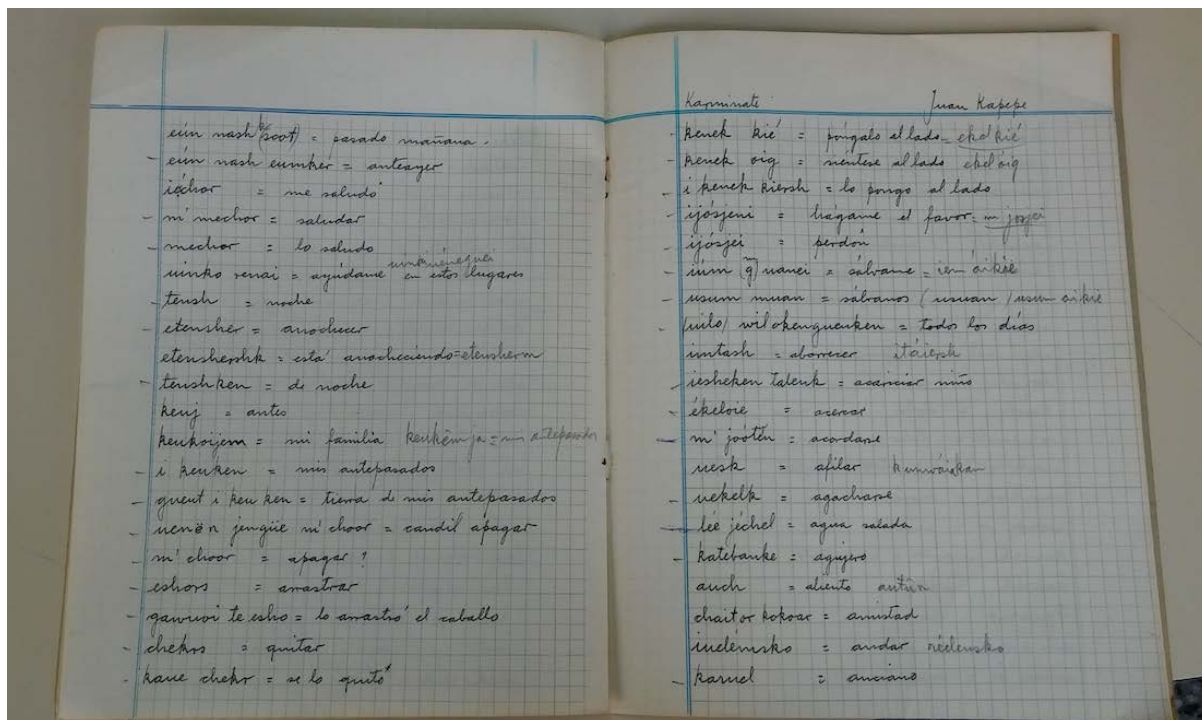 eún nash (soot) = pasado mañana.
- eún nash eumker = anteayer
iéchor = me saludó
- m' mechor = saludar
- mechor = lo saludo
uinko renai = ayúdame en estos lugares
- tensh = noche
- etensher = anochecer
etenshershk = está anocheciendo = etensherm
- tenshken = de noche
kenj = antes
keukoijem = mi familia keukemja = mis antepasados
- i keuken = mis antepasados
- guent i keu ken = tierra de mis antepasados
- uenën jengüe m' choor = candil apagar
- m' choor = apagar ?
- eshors = arrastrar
- gawuoi te esho = lo arrastró el caballo
- chekrs = quitar
- kaue chekr = se lo quitó
Karminati Juan Kapepe
- kenek kié = póngalo al lado = ekel kié
- kenek oig = siéntese al lado ekel oig
- i kenek kiersh = lo pongo al lado
- ijósjeni = hágame el favor = m josjei
- ijósjei = perdón
- iúm (g) uanei = sálvame = iem oikié
- usum muan = sálvanos (usuan / usum oikié
- (uilo) wilokenguenken = todos los días
imtash = aborrecer itáiersh
- iesheken talenk = acariciar niño
- ékeloie = acercar
- m' jooten = acordarse
- uesk = afilar
- uekelk = agacharse
- lée jéchel = agua salada
- katebanke = agujero
auch = aliento
chaitor kokoar = amistad
indémsko = andar
- karuel = anciano